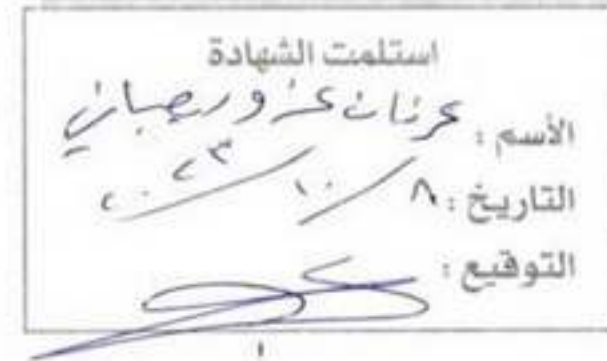 استلمت الشهادة
الأسم : عرفان
التاريخ : ٨ / ١٠ / ٢٠٢٣
التوقيع :
١